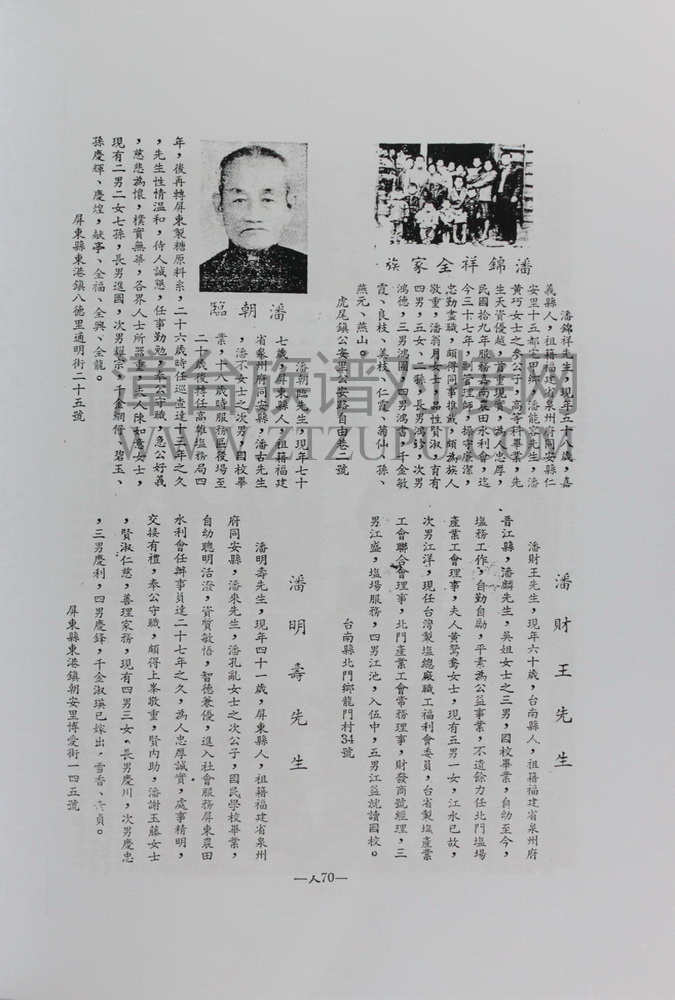 潘錦祥全家族
潘錦祥先生，現年五十八歲，嘉
義縣人，祖籍福建省泉州府同安縣仁
安里十五都定甲鄉，潘能容先生，潘
黃巧女士之參公子，高等科畢業，先
生天資優越，首重現實，為人忠厚，
民國拾九年服務嘉南農田水利會，迄
今三十七年，副管理師，操守廉潔，
忠勤盡職，頗得同事推戴，頗為族人
敬重，潘翁月女士，品性賢淑，育有
四男，五女、二孫，長男鴻珍，次男
鴻德，三男鴻圖，四男鴻書，千金敏
霞、良枝、美枝、仁霞、菊仙，孫、
燕元、燕山。
虎尾鎮公安里公安路自由巷二號
潘朝臨
潘朝臨先生，現年七十
七歲，屏東縣人，祖籍福建
省泉州府同安縣，潘古先生
，潘不女士之次男，國校畢
業，十八歲時服務區後場至
二十歲後轉任高雄塩務局四
年，後再轉屏東製糖原料系，二十六歲時任巡查達十三年之久
，先生性情溫和，待人誠懇，任事勤勉，奉公守職，急公好義
，慈悲為懷，樸實無華，各界人士所器重，夫人陳如意女士，
現有二男二女七孫，長男進國，次男耀宗，千金綢倚、碧玉、
孫慶輝、慶煌，献亭、全福、全興、全龍。
屏東縣東港鎮八德里通明街二十五號
潘財王先生
潘財王先生，現年六十歲，台南縣人，祖籍福建省泉州府
晋江縣，潘麟先生，吳姐女士之三男，國校畢業，自幼至今，
塩務工作，自勤自勵，平素為公益事業，不遺餘力任北門塩場
產業工會理事，夫人黃鴛鴦女士，現有五男一女，江水已故，
次男江洋，現任台灣製塩總廠職工福利會委員，台省製塩產業
工會聯合會理事，北門產業工會常務理事，財發商號經理，三
男江盛，塩場服務，四男江池，入伍中，五男江益就讀國校。
台南縣北門鄉龍門村34號
潘明壽先生
潘明壽先生，現年四十一歲，屏東縣人，祖籍福建省泉州
府同安縣，潘來先生，潘孔亂女士之次公子，國民學校畢業，
自幼聰明活潑，資質敏悟，智德兼優，進入社會服務屏東農田
水利會任辦事員達二十七年之久，為人忠厚誠實，處事精明，
交接有禮，奉公守職，頗得上峯敬重，賢內助，潘謝玉藤女士
，賢淑仁慈，善理家務，現有四男三女，長男慶川，次男慶忠
，三男慶利，四男慶鋒，千金淑瑛已嫁出，雪香、貞。
屏東縣東港鎮朝安里博愛街一四五號
—人70—
WWW.ZTZUPU.COM